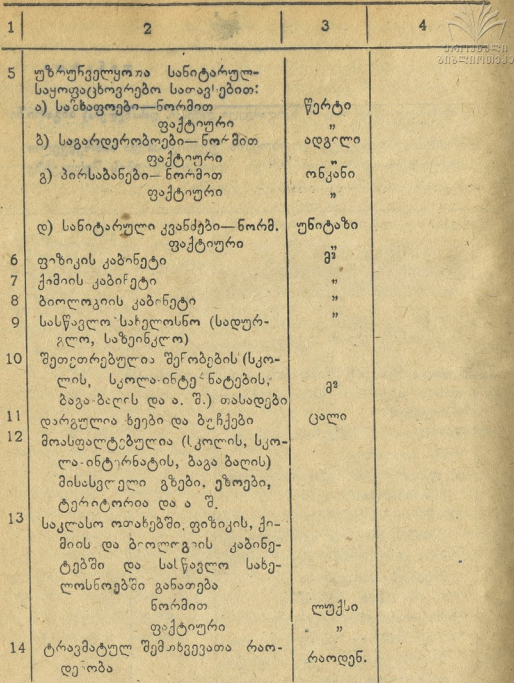 1 2 3 4
ეროვნული
ბიბლიოთეკა
5 უზრუნველყოფა სანიტარულ-
საყოფაცხოვრებო სათავსებით:
ა) საშხაპეები—ნორმით წერტი
ფაქტიური „
ბ) საგარდერობოები—ნორმით ადგილი
ფაქტიური „
გ) პირსაბანები—ნორმით ონკანი
ფაქტიური „
დ) სანიტარული კვანძები—ნორმ. უნიტაზი
ფაქტიური „
6 ფიზიკის კაბინეტი მ²
7 ქიმიის კაბინეტი „
8 ბიოლოგიის კაბინეტი „
9 სასწავლო სახელოსნო (სადურ- „
გლო, საზეინკლო)
10 შეთეთრებულია შენობების (სკო-
ლის, სკოლა-ინტერნატების, მ²
ბაგა-ბაღის და ა. შ.) ფასადები
11 დარგულია ხეები და ბუჩქები ცალი
12 მოასფალტებულია (სკოლის, სკო-
ლა-ინტერნატის, ბაგა ბაღის)
მისასვლელი გზები, ეზოები,
ტერიტორია და ა შ.
13 საკლასო ოთახებში, ფიზიკის, ქი-
მიის და ბიოლოგიის კაბინე-
ტებში და სასწავლო სახე-
ლოსნოებში განათება
ნორმით ლუქსი
ფაქტიური „
14 ტრავმატულ შემთხვევათა რაო- რაოდენ.
დენობა